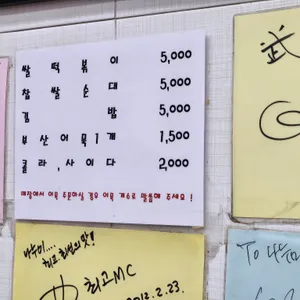 쌀 떡 볶 이 5,000
찹 쌀 순 대 5,000
김 밥 5,000
부 산 어 묵 1 개 1,500
콜 라 , 사 이 다 2,000
매장에서 어묵 주문하실 경우 어묵 개수로 말씀해 주세요!
최고MC
2012.2.23.
武
To 나누